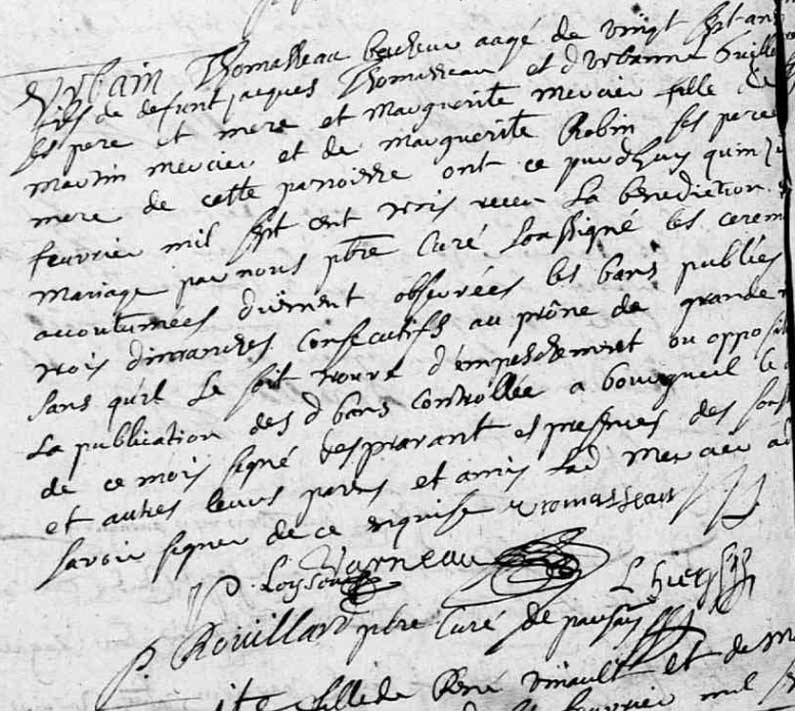 Urbain Thomasseau bescheur aagé de vingt sept ans
fils de defunt jacques Thomasseau et d'Urbanne
ses pere et mere et Marguerite mercier fille de
martin mercier et de marguerite Robin ses pere
mere de cette paroisse ont ce jourdhuy quinz
feuvrier mil sept cent trois receu la benediction
mariage par nous pbre Curé soussigné les cerem
accoutumées duement observées les bans publiés
trois dimanches consecutifs au prône de grande
sans qu'il se soit trouvé d'empeschement ou opposit
La publication des d bans controllée a bourgueil le
de ce mois signé desprarant es presences des sous
et autres leurs parens et amis Lad mercier a
savoir signer de ce enquise Thomasseau
P. Loyseau Varneau
P. Rouillard pbre Curé de
fille de René vinault et de M
feuvrier mil